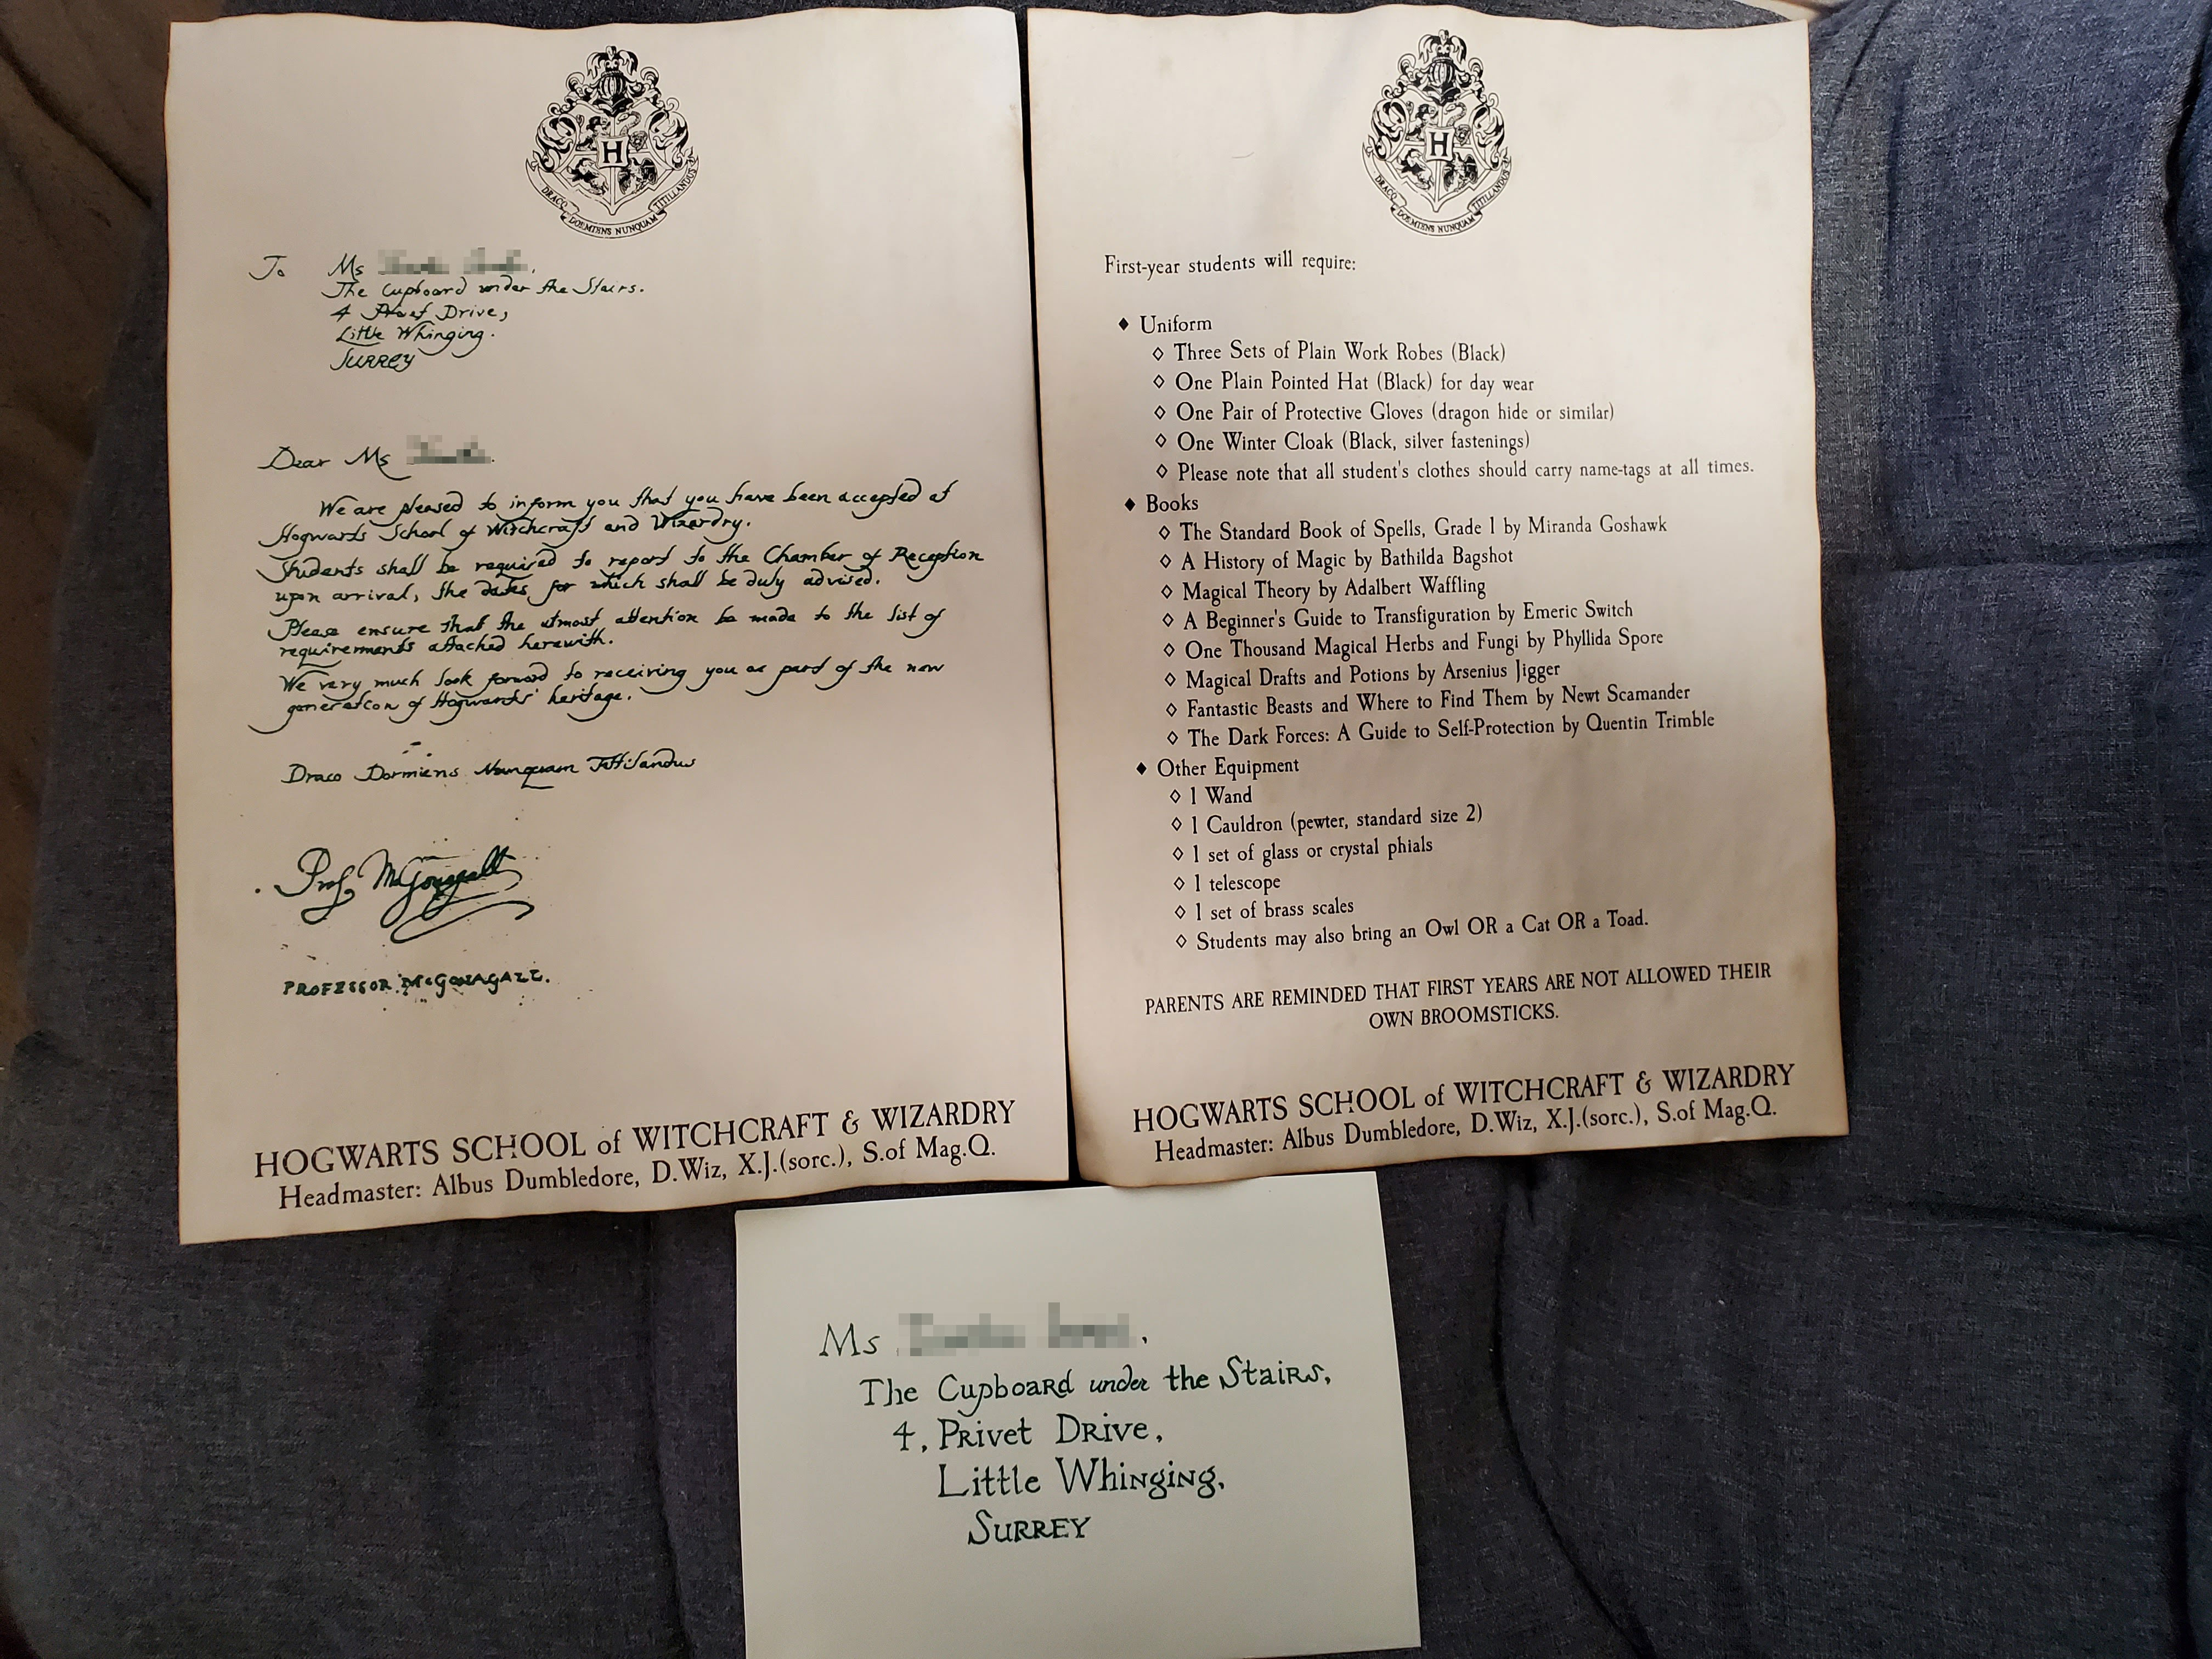 H
DRACO DORMIENS NUNQUAM TITILLANDUS
To Ms
The Cupboard under the Stairs.
4 Privet Drive,
Little Whinging.
SURREY
Dear Ms
We are pleased to inform you that you have been accepted at
Hogwarts School of Witchcraft and Wizardry.
Students shall be required to report to the Chamber of Reception
upon arrival, the dates for which shall be duly advised.
Please ensure that the utmost attention be made to the list of
requirements attached herewith.
We very much look forward to receiving you as part of the new
generation of Hogwarts' heritage.
Draco Dormiens Nunquam Tittilandus
Prof. McGonagall
PROFESSOR McGONAGALL.
HOGWARTS SCHOOL of WITCHCRAFT & WIZARDRY
Headmaster: Albus Dumbledore, D.Wiz, X.J.(sorc.), S.of Mag.Q.
H
DRACO DORMIENS NUNQUAM TITILLANDUS
First-year students will require:
♦ Uniform
◊ Three Sets of Plain Work Robes (Black)
◊ One Plain Pointed Hat (Black) for day wear
◊ One Pair of Protective Gloves (dragon hide or similar)
◊ One Winter Cloak (Black, silver fastenings)
◊ Please note that all student's clothes should carry name-tags at all times.
♦ Books
◊ The Standard Book of Spells, Grade 1 by Miranda Goshawk
◊ A History of Magic by Bathilda Bagshot
◊ Magical Theory by Adalbert Waffling
◊ A Beginner's Guide to Transfiguration by Emeric Switch
◊ One Thousand Magical Herbs and Fungi by Phyllida Spore
◊ Magical Drafts and Potions by Arsenius Jigger
◊ Fantastic Beasts and Where to Find Them by Newt Scamander
◊ The Dark Forces: A Guide to Self-Protection by Quentin Trimble
♦ Other Equipment
◊ 1 Wand
◊ 1 Cauldron (pewter, standard size 2)
◊ 1 set of glass or crystal phials
◊ 1 telescope
◊ 1 set of brass scales
◊ Students may also bring an Owl OR a Cat OR a Toad.
PARENTS ARE REMINDED THAT FIRST YEARS ARE NOT ALLOWED THEIR
OWN BROOMSTICKS.
HOGWARTS SCHOOL of WITCHCRAFT & WIZARDRY
Headmaster: Albus Dumbledore, D.Wiz, X.J.(sorc.), S.of Mag.Q.
Ms
The Cupboard under the Stairs,
4, Privet Drive,
Little Whinging,
SURREY